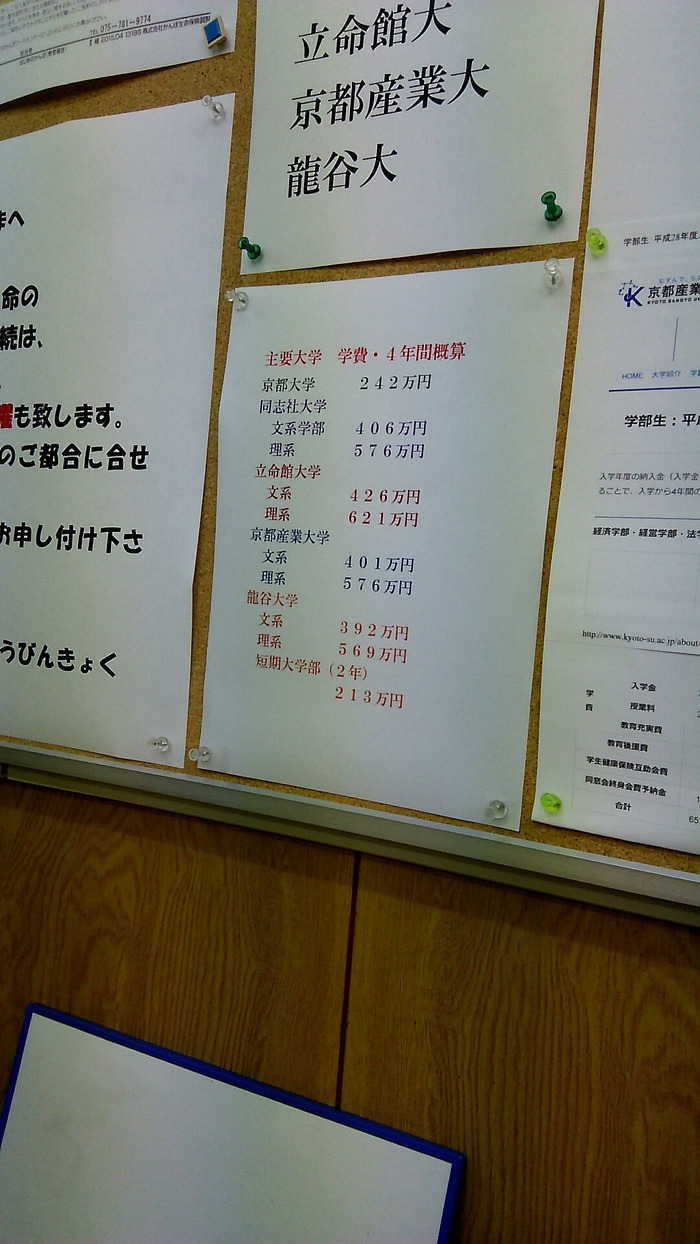 TEL 075-781-9774
立命館大
京都産業大
龍谷大
まへ
命の
続は、
曜も致します。
のご都合に合せ
お申し付け下さ
うびんきょく
主要大学 学費・４年間概算
京都大学 ２４２万円
同志社大学
文系学部 ４０６万円
理系 ５７６万円
立命館大学
文系 ４２６万円
理系 ６２１万円
京都産業大学
文系 ４０１万円
理系 ５７６万円
龍谷大学
文系 ３９２万円
理系 ５６９万円
短期大学部（２年）
２１３万円
学部生：平成28年度
京都産業
KYOTO SANGYO UN
HOME 大学紹介 学
学部生：平
入学年度の納入金（入学金
ることで、入学から4年間の
経済学部・経営学部・法学
http://www.kyoto-su.ac.jp/about/
学費
入学金
授業料
教育充実費
教育後援費
学生健康保険互助会費
同窓会終身会費予納金
合計
65